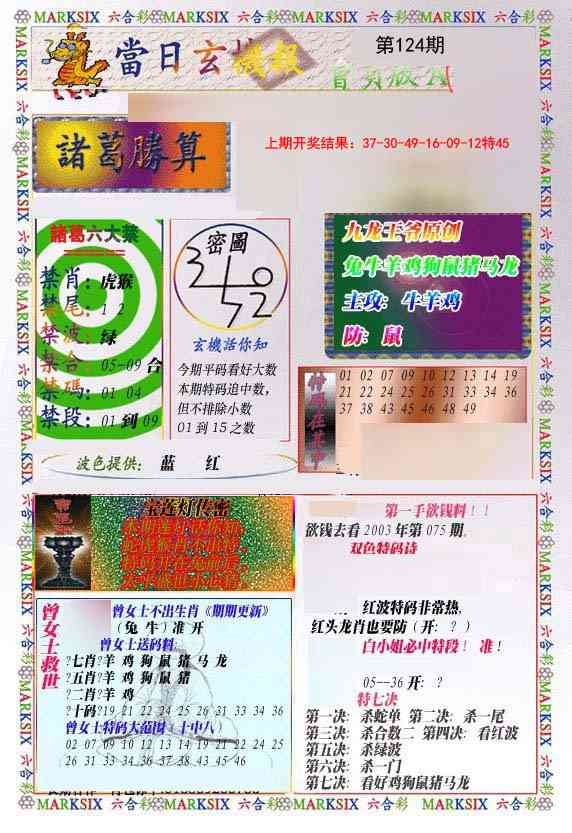 MARKSIX 六合彩 MARKSIX 六合彩 MARKSIX 六合彩 MARKSIX 六合彩 MARKSIX 六合彩
當日玄機報
第124期
諸葛勝算
上期开奖结果：37-30-49-16-09-12特45
諸葛六大禁
禁肖：虎猴
禁尾：1 2
禁波：绿
禁合：05-09 合
禁碼：01 04
禁段：01 到 09
密圖
玄機話你知
今期平码看好大数
本期特码追中数，
但不排除小数
01 到 15 之数
九龙王爷原创
兔牛羊鸡狗鼠猪马龙
主攻：牛羊鸡
防：鼠
01 02 07 09 10 12 13 14 19
21 22 24 25 26 31 33 34 36
37 38 43 45 46 48 49
波色提供： 蓝 红
宝莲灯传密
第一手欲钱料！！
欲钱去看 2003 年第 075 期。
双色特码诗
红波特码非常热,
红头龙肖也要防（开：？）
白小姐必中特段！ 准！
05--36 开: ？
特七决
第一决: 杀蛇单 第二决: 杀一尾
第三决: 杀合数二 第四决: 看红波
第五决: 杀绿波
第六决: 杀一门
第七决: 看好鸡狗鼠猪马龙
曾女士救世
曾女士不出生肖《期期更新》
（兔 牛）准 开
曾女士送码料:
?七肖?羊 鸡 狗 鼠 猪 马 龙
?五肖?羊 鸡 狗 鼠 猪
?二肖?羊 鸡
?十码?19 21 22 24 25 26 31 33 34 36
曾女士特码大范围（十中八）
02 07 09 10 12 13 19 21 22 24 25
26 31 33 34 36 37 38 43 45 46
MARKSIX 六合彩 MARKSIX 六合彩 MARKSIX 六合彩 MARKSIX 六合彩 MARKSIX 六合彩